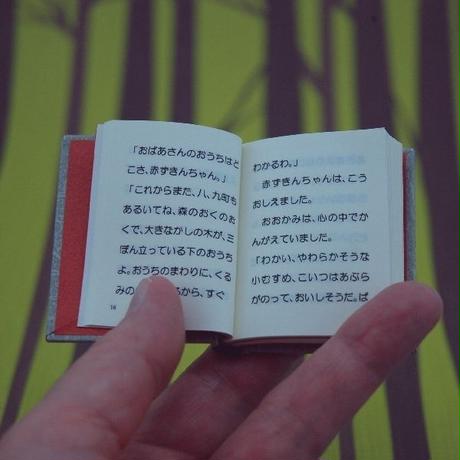 「おばあさんのおうちはど
こさ、赤ずきんちゃん。」
「これからまだ、八、九町も
あるいてね、森のおくのお
くで、大きなかしの木が、三
ぼん立っている下のおうち
よ。おうちのまわりに、くる
みの からから、すぐ
16
わかるわ。」
赤ずきんちゃんは、こう
おしえました。
おおかみは、心の中でか
んがえていました。
「わかい、やわらかそうな
小むすめ、こいつはあぶら
がのって、おいしそうだ。ば